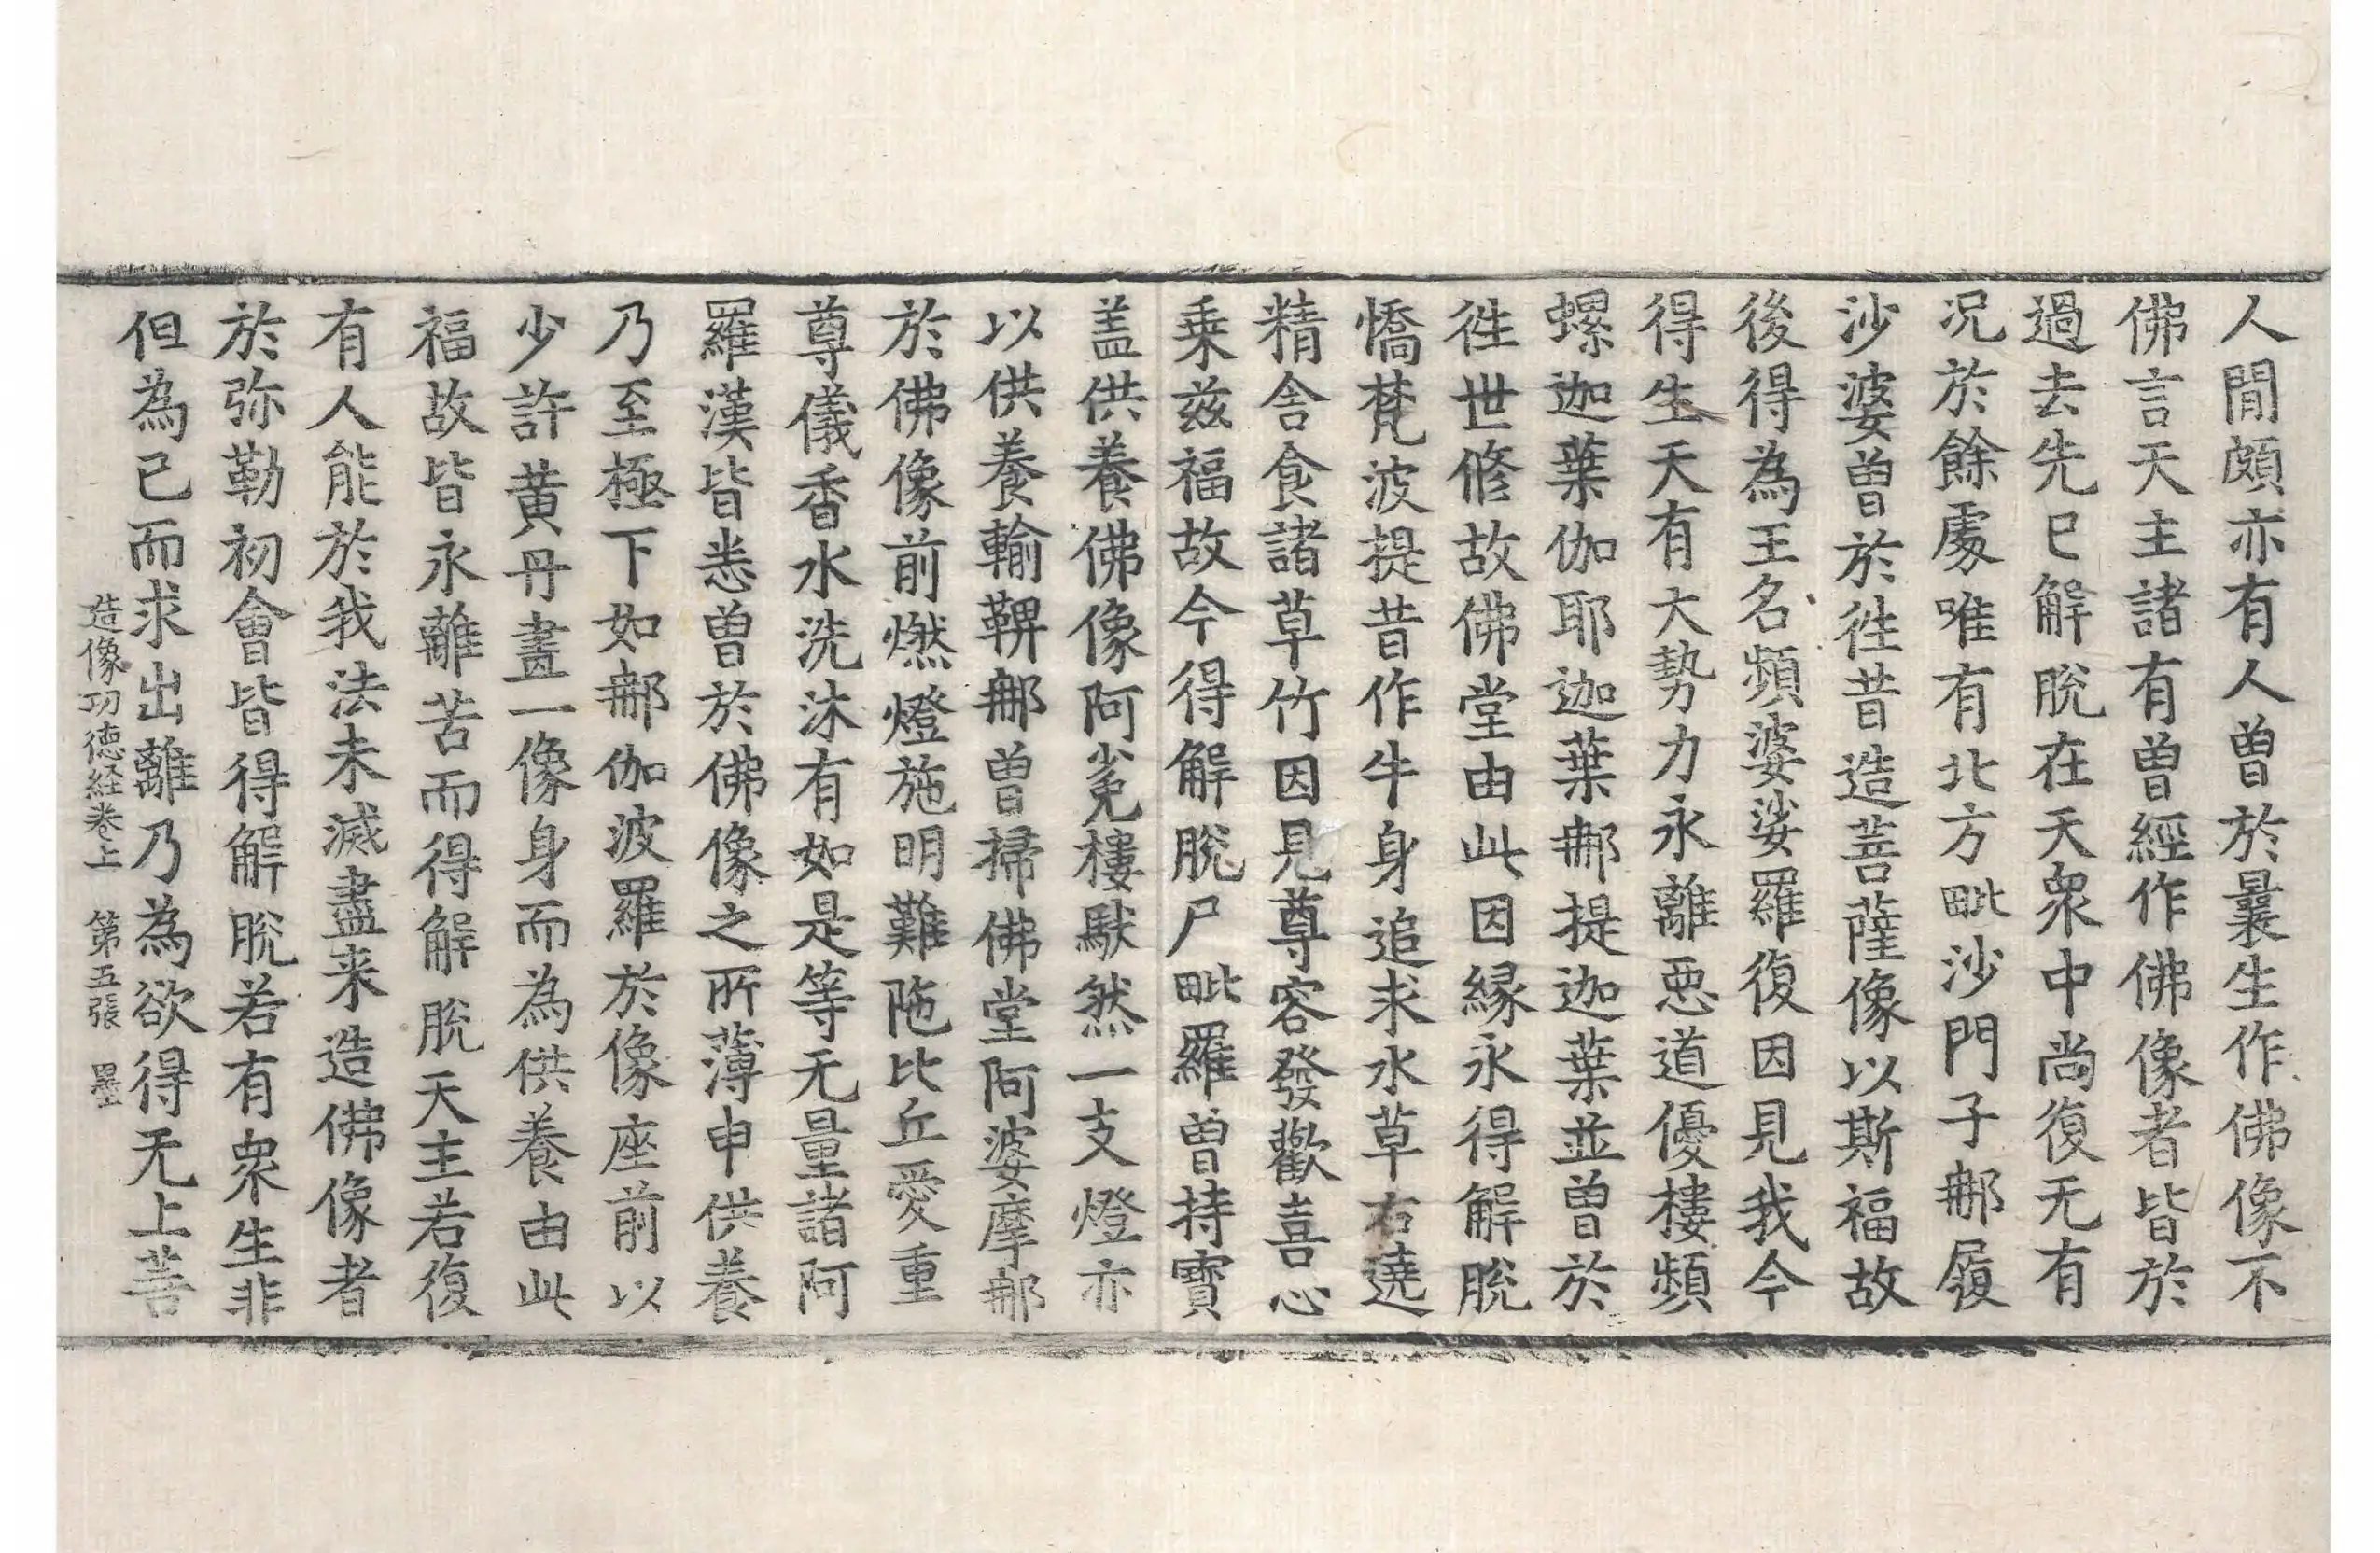 人間頗亦有人曽於曩生作佛像不
佛言天主諸有曽經作佛像者皆於
過去先已解脫在天衆中尚復无有
况於餘處唯有北方毗沙門子那履
沙婆曽於往昔造菩薩像以斯福故
後得為王名頻婆娑羅復因見我今
得生天有大勢力永離惡道優樓頻
螺迦葉伽耶迦葉那提迦葉並曽於
往世修故佛堂由此因縁永得解脫
憍梵波提昔作牛身追求水草右遶
精舍食諸草竹因見尊容發歡喜心
乗兹福故今得解脫尸毗羅曽持寶
盖供養佛像阿㝹樓馱然一支燈亦
以供養輸鞞那曽掃佛堂阿婆摩那
於佛像前燃燈施明難陁比丘愛重
尊儀香水洗沐有如是等无量諸阿
羅漢皆悉曽於佛像之所薄申供養
乃至極下如那伽波羅於像座前以
少許黄丹畫一像身而為供養由此
福故皆永離苦而得解脫天主若復
有人能於我法未滅盡来造佛像者
於弥勒初會皆得解脫若有衆生非
但為已而求出離乃為欲得无上菩
造像功德経卷上 第五張 墨